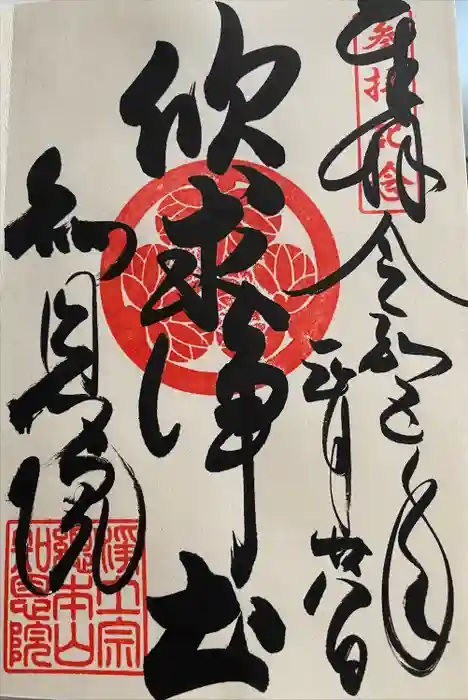 参拝記念
奉拝
令和五年
三月廿八日
欣求浄土
知恩院
淨土宗
總本山
知恩院